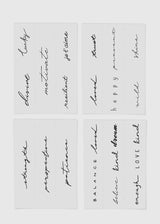 choose lucky
motivate
resilient
loved trust
happy present
wild shine
strength
perspective
patience
BALANCE loved
believe kind dream
enough LOVE kind